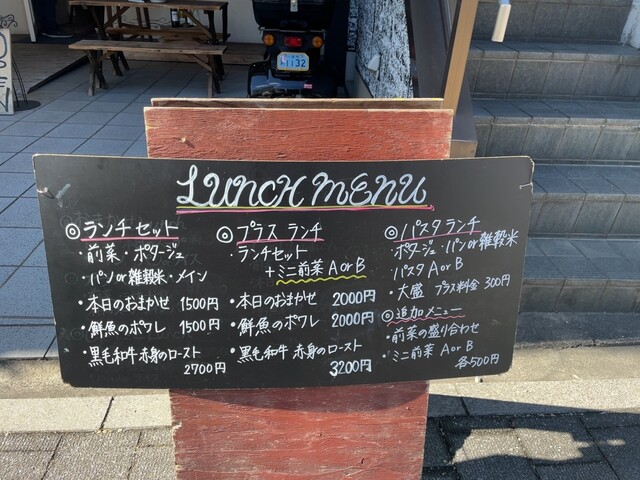 LUNCH MENU
◎ランチセット
・前菜・ポタージュ
・パンor雑穀米・メイン
・本日のおまかせ 1500円
・鮮魚のポワレ 1500円
・黒毛和牛 赤身のロースト
2700円
◎プラスランチ
・ランチセット
+ミニ前菜 A or B
・本日のおまかせ 2000円
・鮮魚のポワレ 2000円
・黒毛和牛 赤身のロースト
3200円
◎パスタランチ
・ポタージュ・パンor雑穀米
・パスタ A or B
・大盛 プラス料金 300円
◎追加メニュー
・前菜の盛り合わせ
・ミニ前菜 A or B
各500円
1132